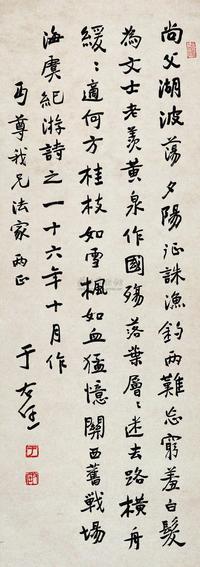 尚父湖波荡夕陽征誅漁釣两難忘窮羞白髮
為文士老羨黃泉作國殤落葉層〻迷去路橫舟
緩〻適何方桂枝如雪楓如血猛憶關西舊戰場
海虞紀游詩之一十六年十月作
丏尊我兄法家两正
于右任